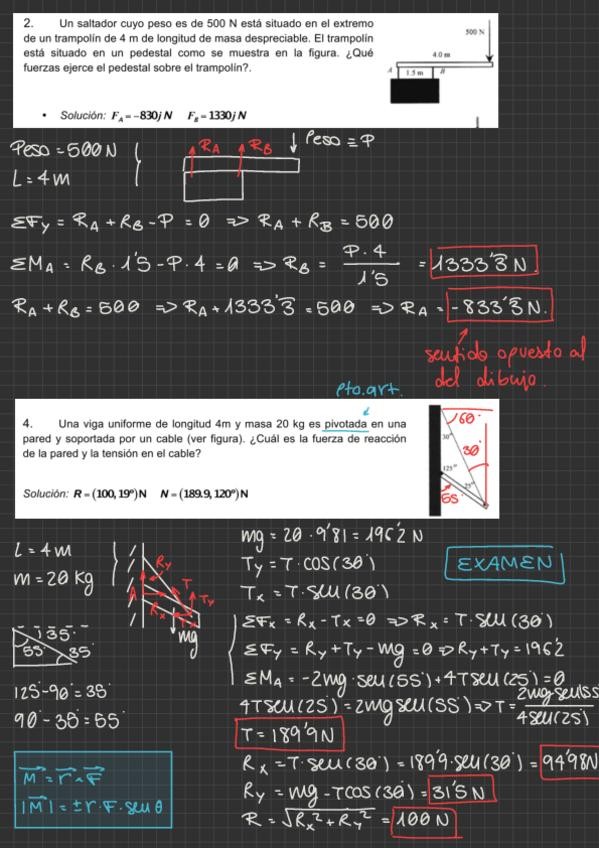 2. Un saltador cuyo peso es de 500 N está situado en el extremo
de un trampolín de 4 m de longitud de masa despreciable. El trampolín
está situado en un pedestal como se muestra en la figura. ¿Qué
fuerzas ejerce el pedestal sobre el trampolín?.
• Solución: F_A = −830j N F_B = 1330j N
500 N
4.0 m
A 1.5 m B
Peso = 500 N
L = 4 m
R_A R_B Peso ≡ P
ΣF_y = R_A + R_B - P = 0 => R_A + R_B = 500
ΣM_A = R_B · 1'5 - P · 4 = 0 => R_B = P · 4 / 1'5 = 1333'3 N.
R_A + R_B = 500 => R_A + 1333'3 = 500 => R_A = -833'3 N.
sentido opuesto al
del dibujo.
pto. art.
4. Una viga uniforme de longitud 4m y masa 20 kg es pivotada en una
pared y soportada por un cable (ver figura). ¿Cuál es la fuerza de reacción
de la pared y la tensión en el cable?
Solución: R = (100, 19º) N N = (189.9, 120º) N
60°
30°
30°
125°
25°
55°
L = 4 m
m = 20 kg
R_y
A T T_y
R_x T_x
mg
135°
55° 35°
125° - 90° = 35°
90° - 35° = 55°
M = r ∧ F
|M| = ± r · F · sen θ
mg = 20 · 9'81 = 196'2 N
T_y = T · cos(30°)
T_x = T · sen(30°)
EXAMEN
ΣF_x = R_x - T_x = 0 => R_x = T · sen(30°)
ΣF_y = R_y + T_y - mg = 0 => R_y + T_y = 196'2
ΣM_A = -2mg · sen(55°) + 4T sen(25°) = 0
4T sen(25°) = 2mg sen(55°) => T = 2mg sen(55 / 4 sen(25°)
T = 189'9 N
R_x = T · sen(30°) = 189'9 · sen(30°) = 94'98 N
R_y = mg - T cos(30°) = 31'5 N
R = √R_x² + R_y² = 100 N